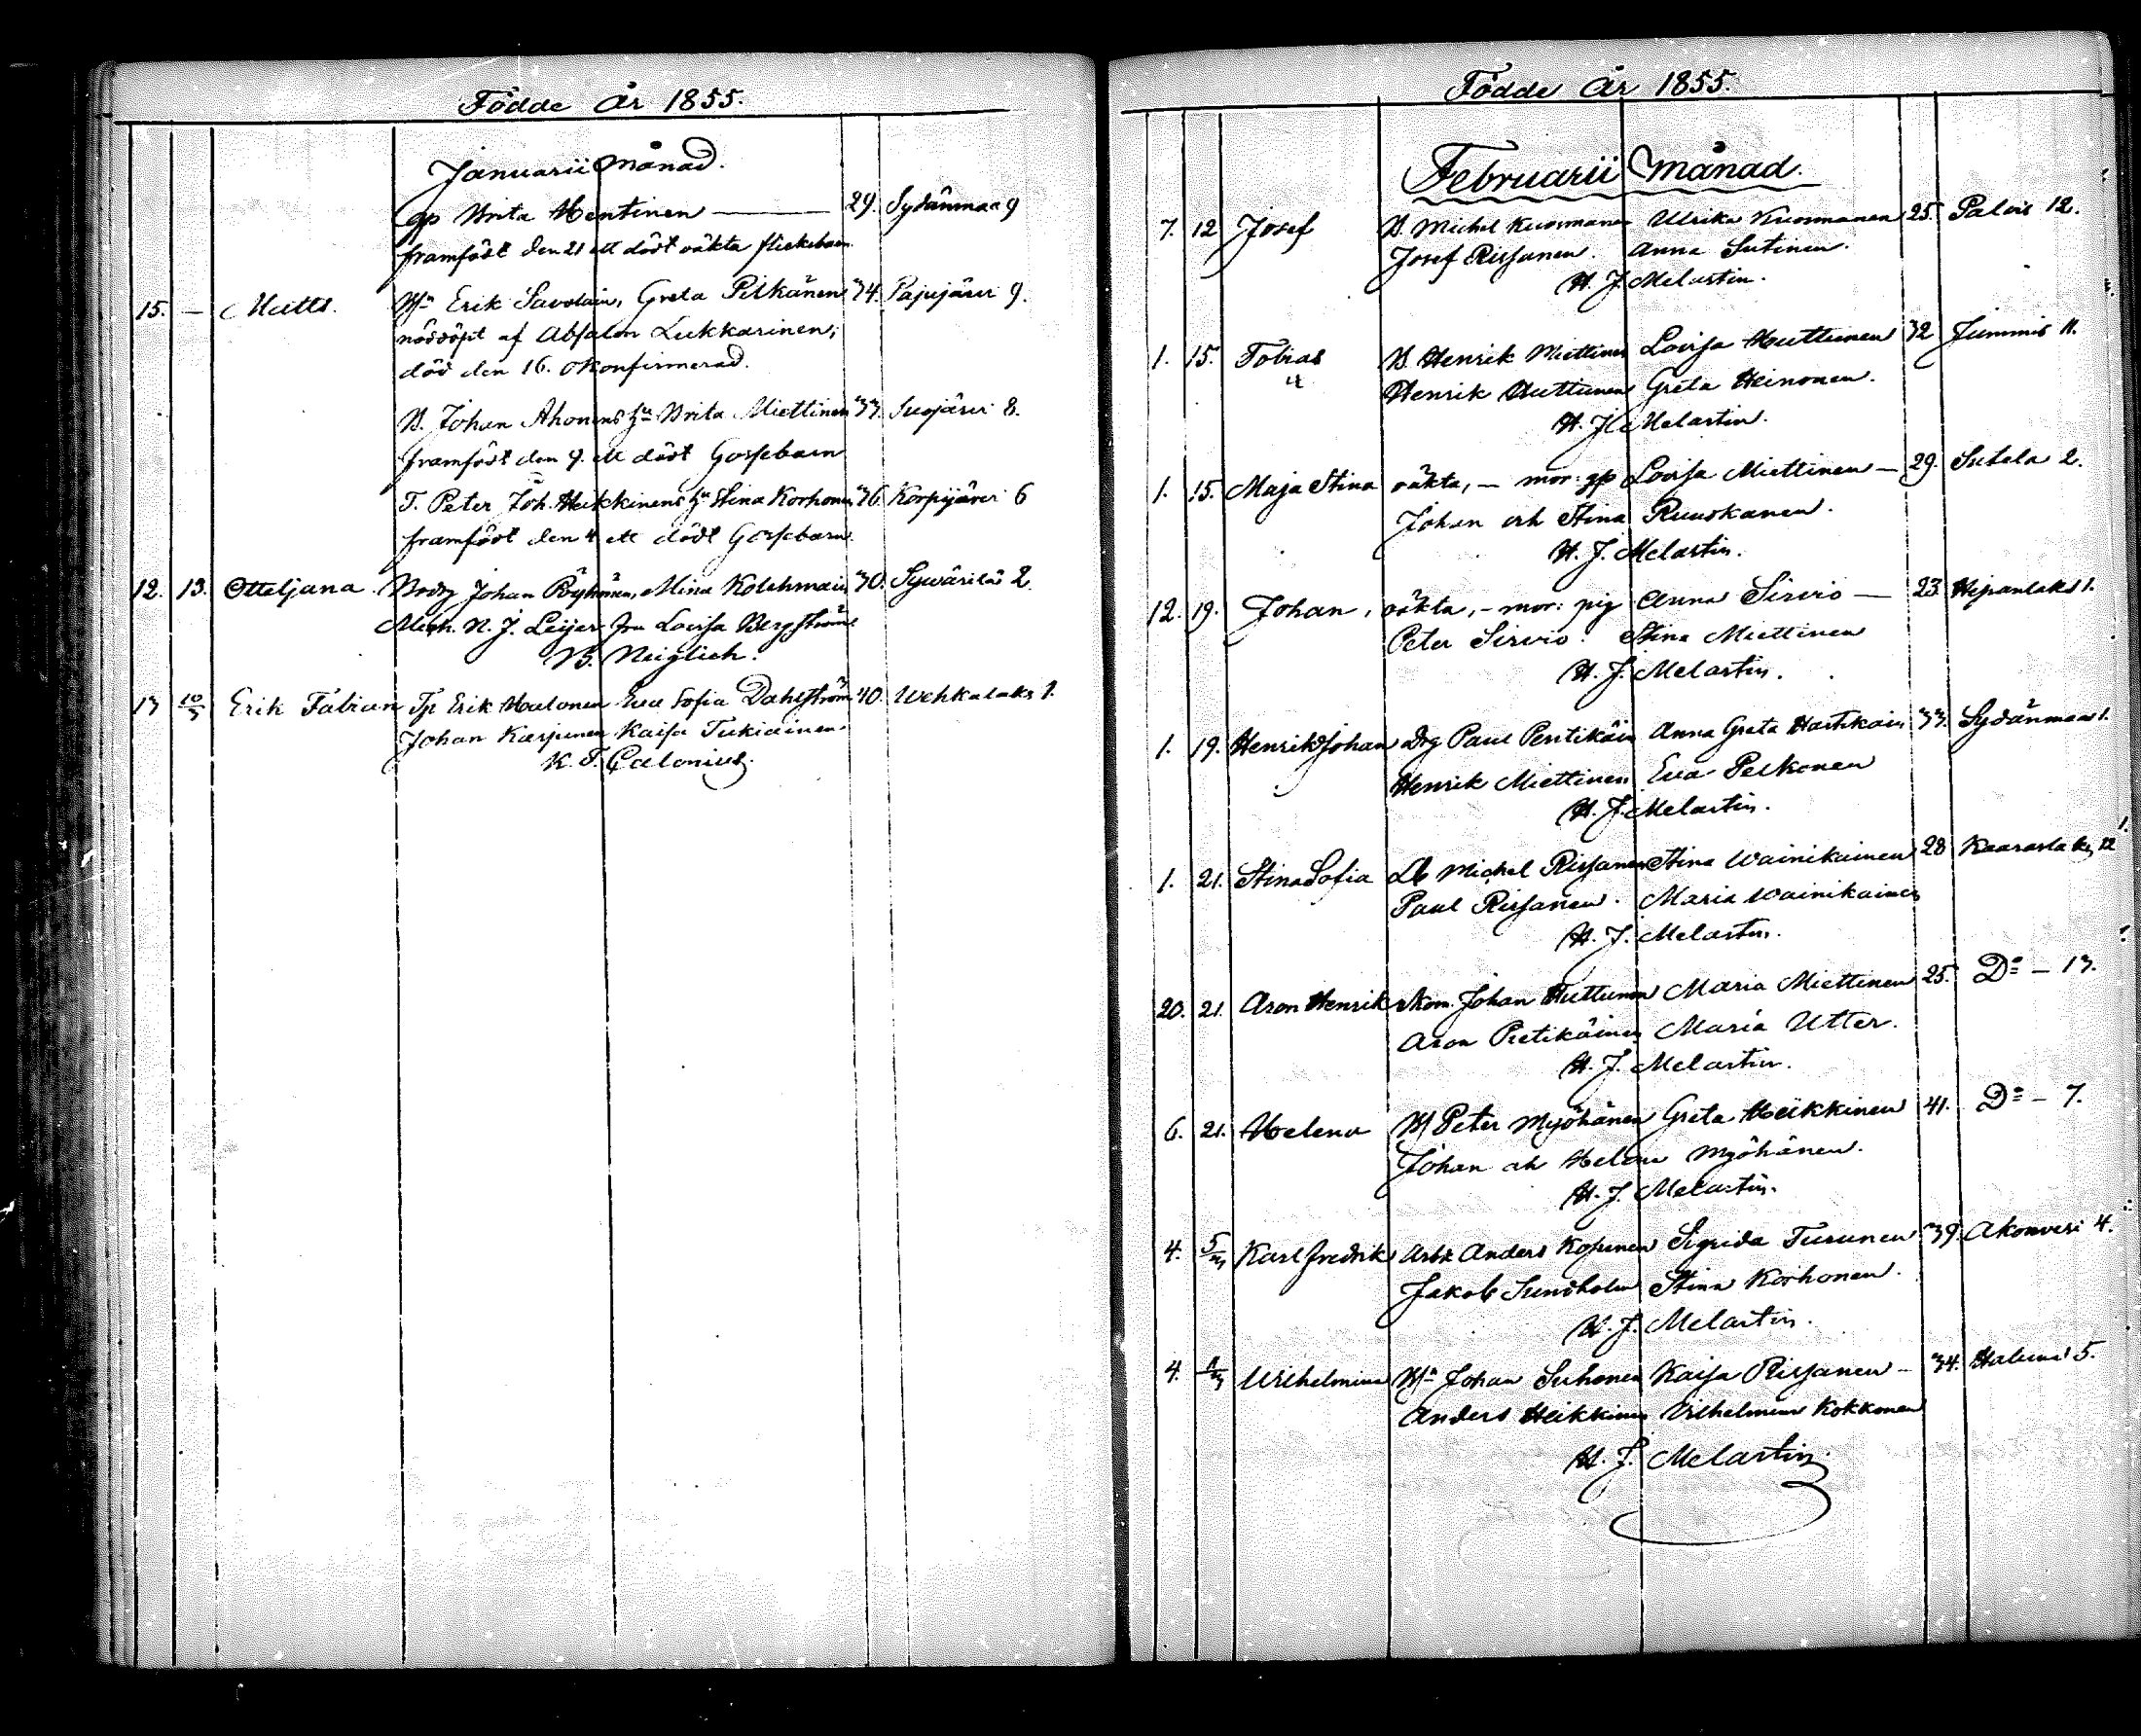 Födde År 1855.
Januarii Månad.
gp Brita Hentinen — 29. Sydänmaa 9
framfödt den 21 ett dödt oäkta flickebarn
15. — Matts. Erik Savolain, Greta Pitkänen 34. Pajujärvi 9.
nöddöpt af Absalon Lukkarinen,
död den 16. okonfirmerad.
B. Johan Ahonens hu Brita Miettinen 33. Suojärvi 8.
framfödt den 9. ett dödt Gossebarn
T. Peter Joh. Heikkinens hu Stina Korhonen 36. Korpijärvi 6
framfödt den 4 ett dödt Gossebarn.
12. 13. Otteljana Johan Röyhönen, Mina Kolehmain 30. Sywärilä 2.
N. J. Leijer fru Lovisa Bergström
B. Neiglick.
13 10/3 Erik Fabian Tp Erik Halonen Eva Sofia Dahlström 40. Wehkalaks 1.
Johan Karpinen Kaisa Tukiainen.
K. F. Calonius.
Födde År 1855.
Februarii Månad.
7. 12 Josef B. Michel Kuosmanen Ulrika Kuosmanen 25. Palois 12.
Josef Rissanen. Anna Sutinen.
H. J. Melartin.
1. 15. Tobias B. Henrik Miettinen Lovisa Huttunen 32 Jummis 11.
Henrik Huttunen Greta Heinonen.
H. J. Melartin.
1. 15. Maja Stina oäkta, — mor: gp Lovisa Miettinen — 29. Sutela 2.
Johan och Stina Ruuskanen.
H. J. Melartin.
12. 19. Johan, oäkta, — mor: pig Anna Sirviö — 23. 1.
Peter Sirviö. Stina Miettinen
H. J. Melartin.
1. 19. Henrik Johan drg Paul Pentikäin Anna Greta Hartikain 33. Sydänmaa 1.
Henrik Miettinen Eva Pelkonen
H. J. Melartin.
1. 21. Stina Sofia Michel Rissanen Stina Wainikainen 28 Kaaraslaks 12
Paul Rissanen. Maria Wainikainen
H. J. Melartin.
20. 21. Aron Henrik Johan Huttunen Maria Miettinen 25. Do — 13.
Aron Pietikäinen Maria Utter.
H. J. Melartin.
6. 21. Helena Peter Myöhänen Greta Heikkinen 41. Do — 7.
Johan och Helena Myöhänen.
H. J. Melartin.
4. 5/3 Karl Fredrik Anders Koponen Sigrida Turunen 39. Akonvesi 4.
Jakob Sundholm Stina Korhonen.
H. J. Melartin.
4. Wilhelmina Johan Suhonen Kaisa Rissanen — 34. Haluna 5.
Anders Heikkinen Vilhelmina Kokkonen
H. J. Melartin.